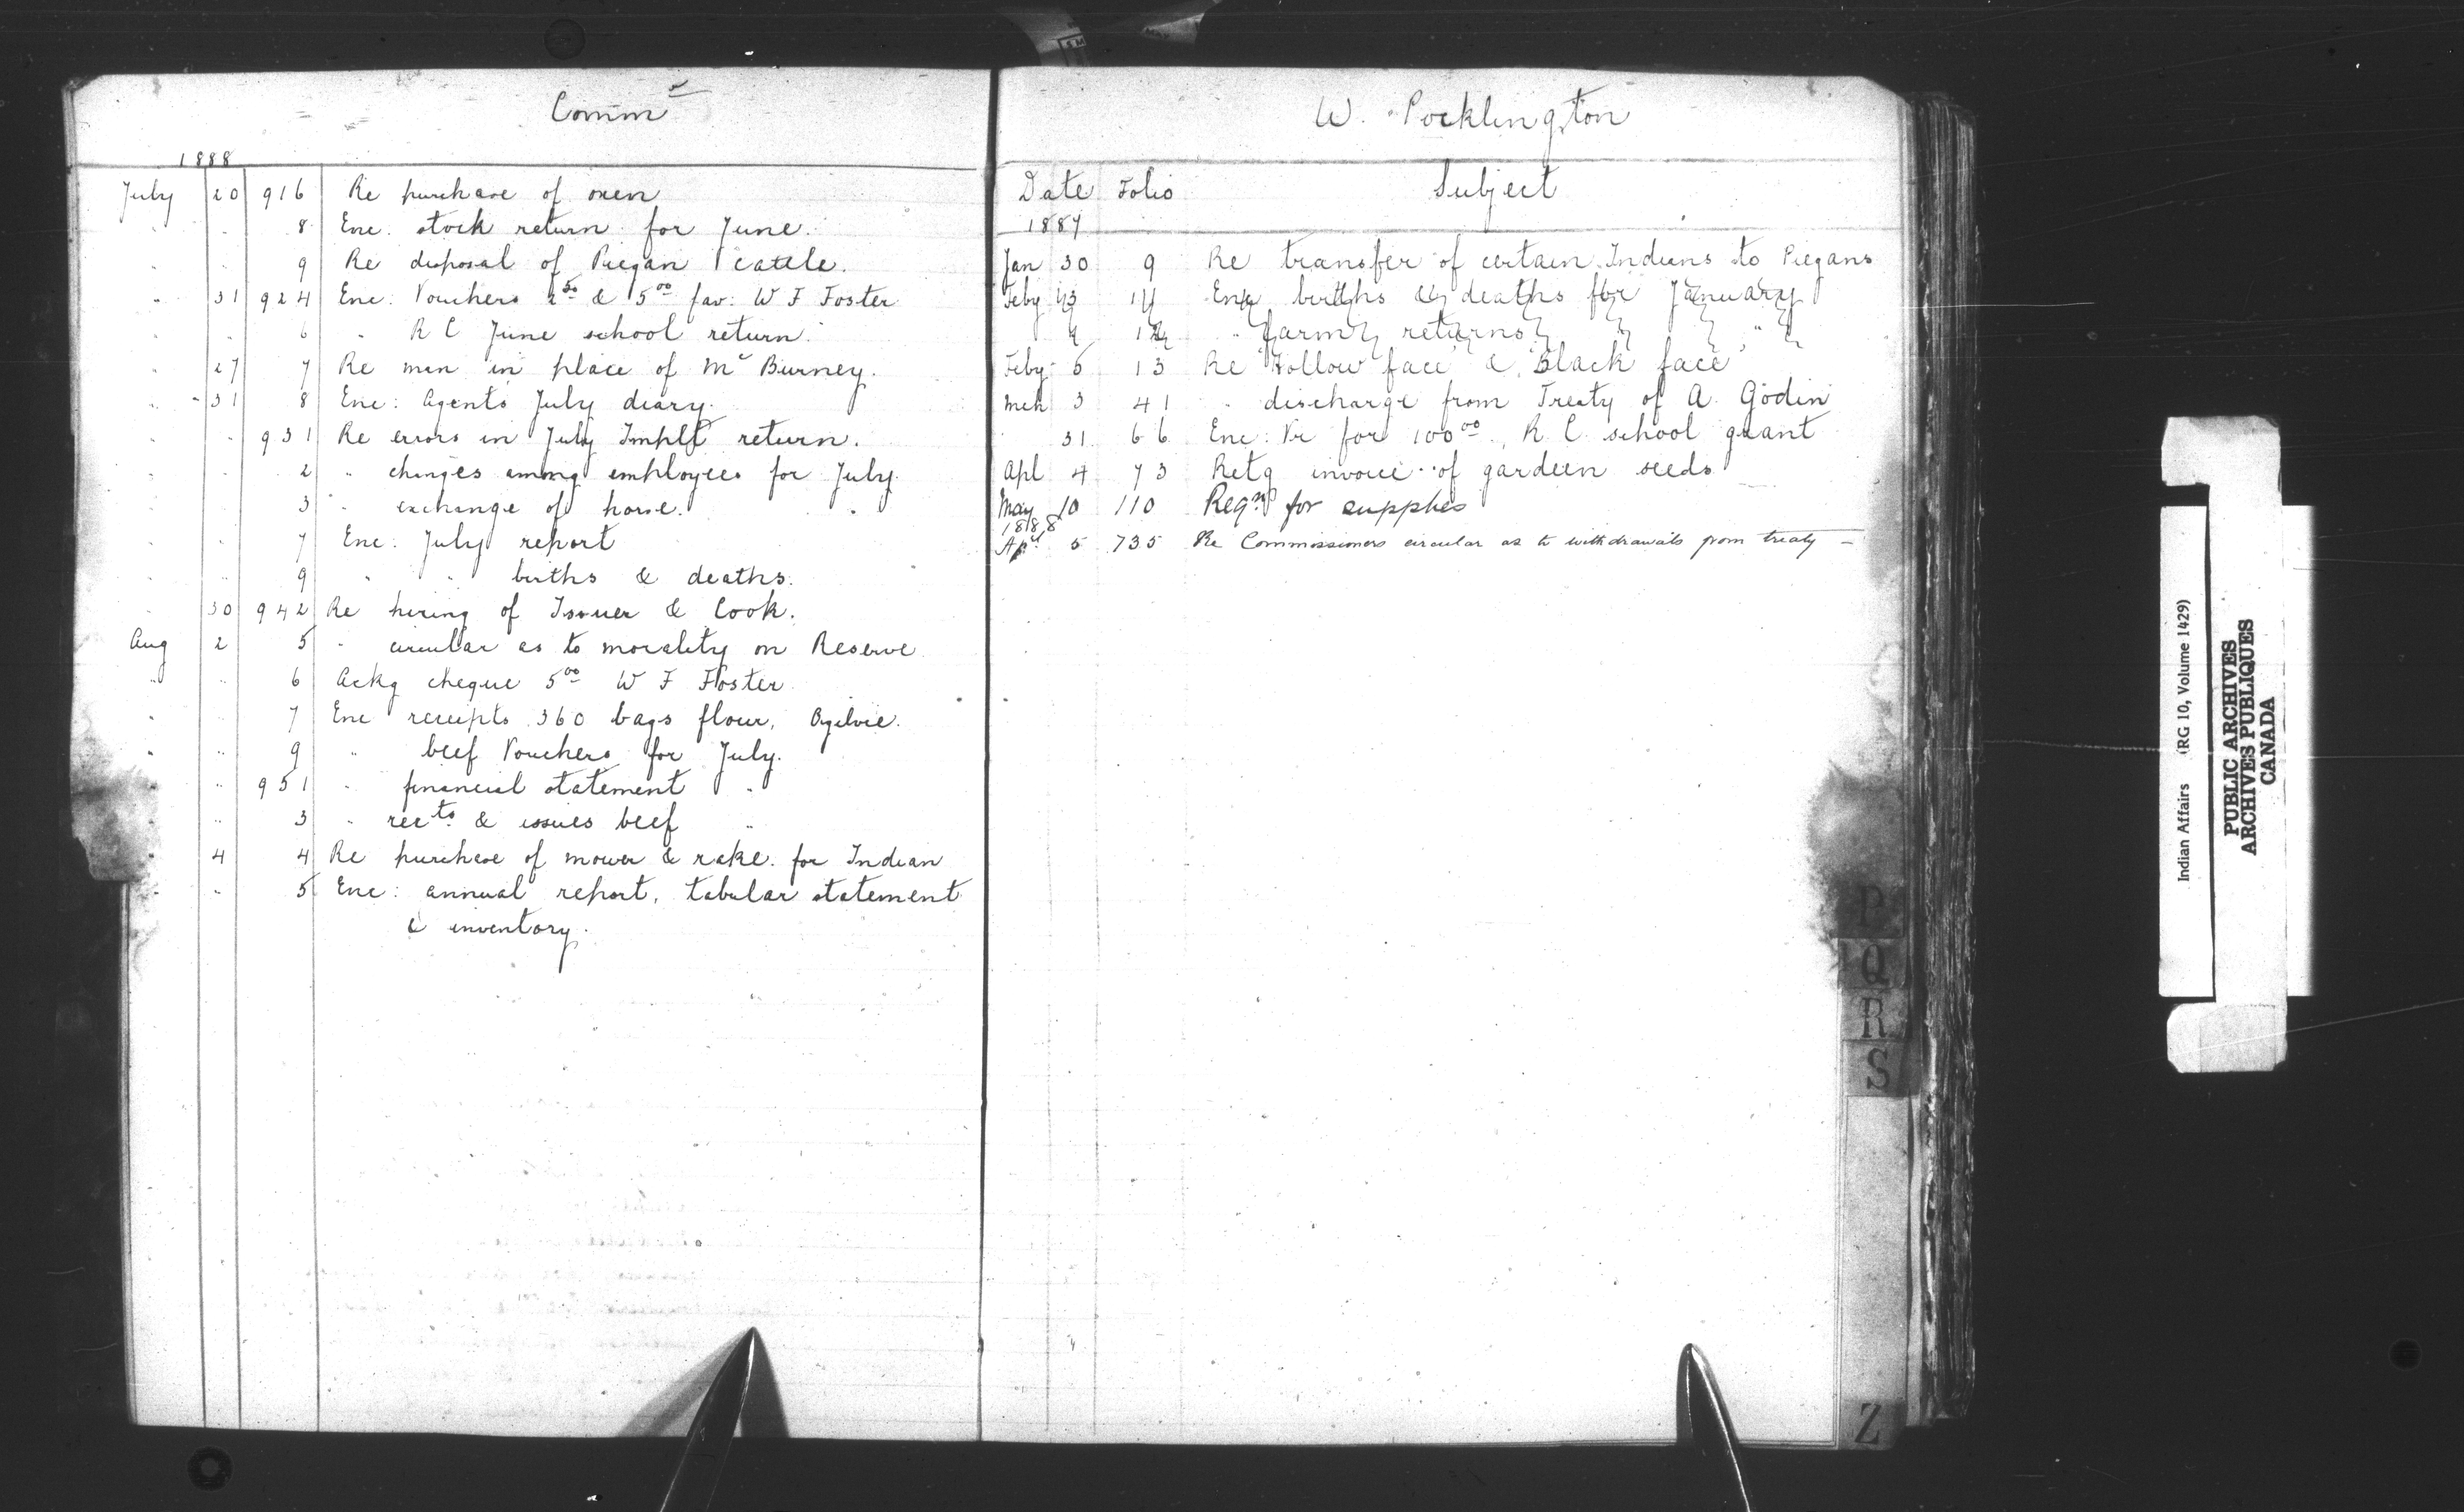 Comm r
1888
July 20 916 Re purchase of oxen
" " 8 Enc. stock return for June.
" " 9 Re disposal of Piegan cattle.
" 31 924 Enc: Vouchers 2 50 & 5 00 fav: W F Foster
" " 6 " R C June school return.
" 27 7 Re man in place of Mc Burney.
" 31 8 Enc: Agents July diary.
" " 931 Re errors in July Implt return.
" " 2 " changes among employees for July.
" " 3 " exchange of horse.
" " 7 Enc: July report
" " 9 " " births & deaths.
" 30 942 Re hiring of Issuer & Cook.
Aug 2 5 " circular as to morality on Reserve
" " 6 Ackg cheque 5 00 W F Foster
" " 7 Enc receipts 360 bags flour, Ogilvie.
" " 9 " beef Vouchers for July.
" " 951 " financial statement "
" " 3 " recets & issues beef "
" 4 4 Re purchase of mower & rake. for Indian
" " 5 Enc: annual report, tabular statement
& inventory.
W. Pocklington
Date Folio Subject
1887
Jan 30 9 Re transfer of certain Indians to Piegans
Feby 11 Enc births & deaths for January
" farm returns " "
Feby 5 13 Re "Hollow face" & "Black face"
Mch 3 41 " discharge from Treaty of A. Godin
31 66 Enc: Vr for 100 00, R. C. school grant
Apl 4 73 Retg invoice of gardeen seeds
May 10 110 Reqn for supplies
1888
Apl 5 735 Re Commissioners circular as to withdrawals from treaty —
P
Q
R
S
Z
Indian Affairs (RG 10, Volume 1429)
PUBLIC ARCHIVES
ARCHIVES PUBLIQUES
CANADA